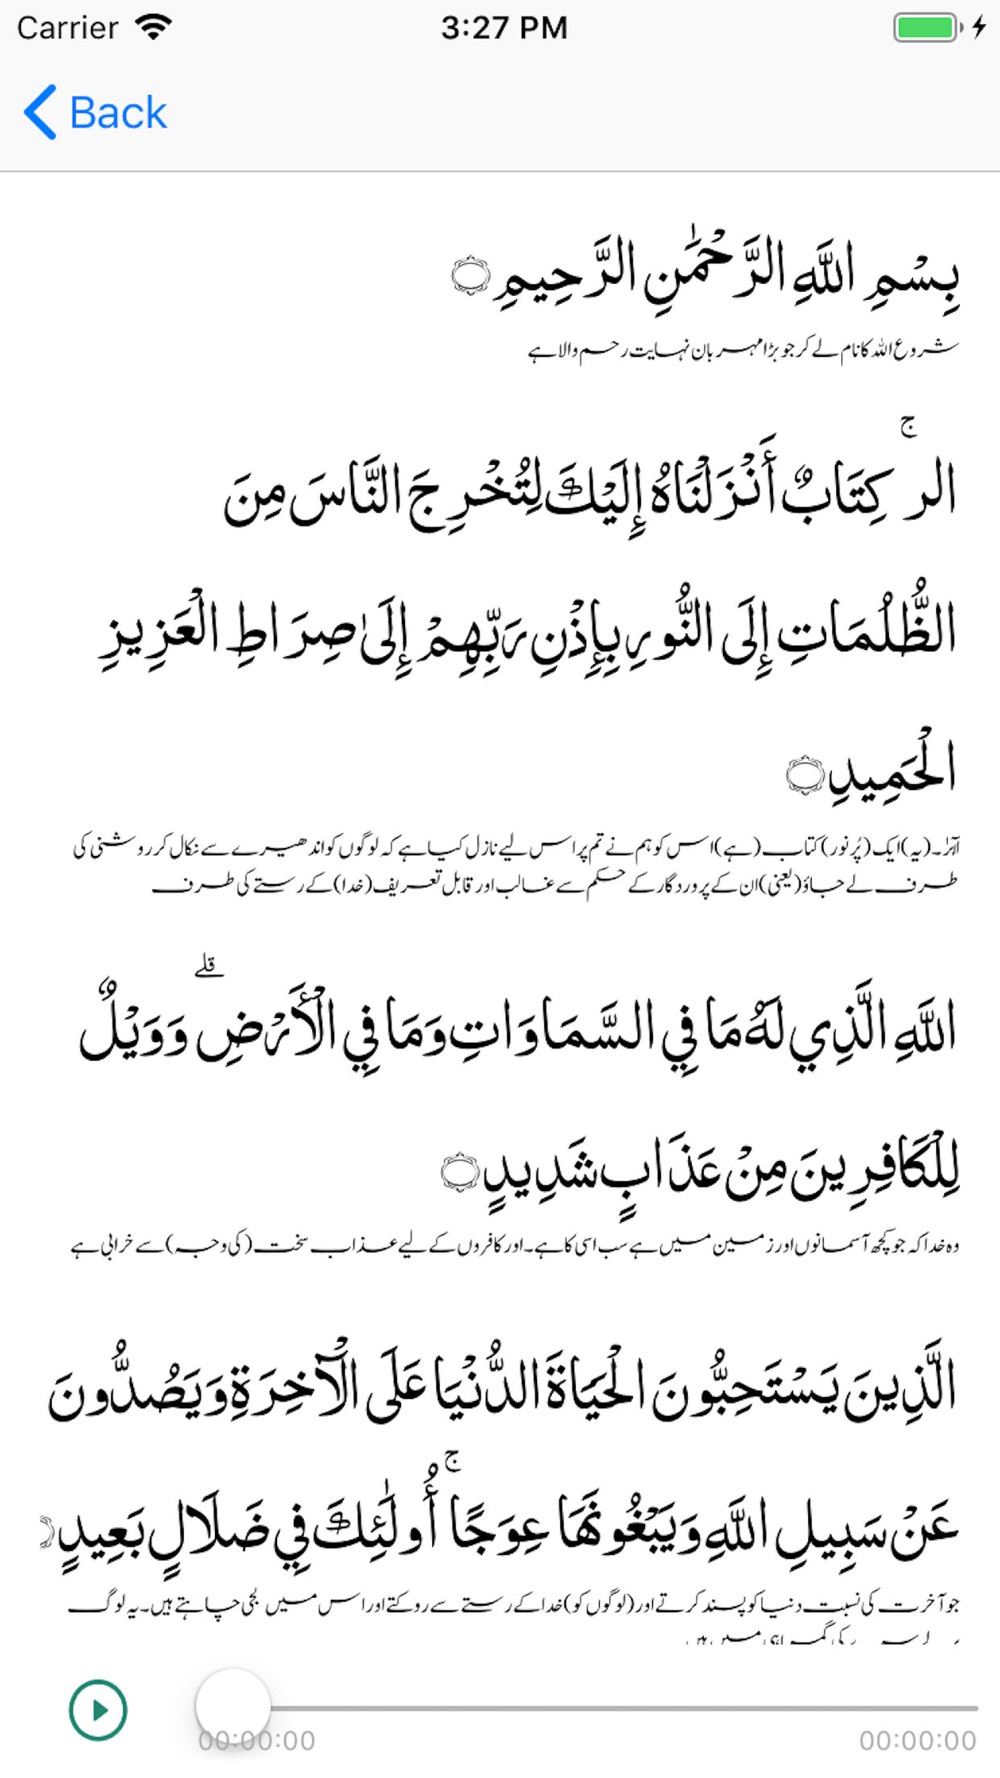 Carrier 3:27 PM
Back
بِسْمِ اللَّهِ الرَّحْمَٰنِ الرَّحِيمِ ۝
شروع الله کا نام لے کر جو بڑا مہربان نہایت رحم والا ہے
الر ۚ كِتَابٌ أَنْزَلْنَاهُ إِلَيْكَ لِتُخْرِجَ النَّاسَ مِنَ
الظُّلُمَاتِ إِلَى النُّورِ بِإِذْنِ رَبِّهِمْ إِلَىٰ صِرَاطِ الْعَزِيزِ
الْحَمِيدِ ۝
الٓرٰ۔ (یہ) ایک (پُرنور) کتاب (ہے) اس کو ہم نے تم پر اس لیے نازل کیا ہے کہ لوگوں کو اندھیرے سے نکال کر روشنی کی
طرف لے جاؤ (یعنی) ان کے پروردگار کے حکم سے غالب اور قابل تعریف (خدا) کے رستے کی طرف
اللَّهِ الَّذِي لَهُ مَا فِي السَّمَاوَاتِ وَمَا فِي الْأَرْضِ ۗ وَوَيْلٌ
لِلْكَافِرِينَ مِنْ عَذَابٍ شَدِيدٍ ۝
وہ خدا کہ جو کچھ آسمانوں اور زمین میں ہے سب اسی کا ہے۔ اور کافروں کے لیے عذاب سخت (کی وجہ) سے خرابی ہے
الَّذِينَ يَسْتَحِبُّونَ الْحَيَاةَ الدُّنْيَا عَلَى الْآخِرَةِ وَيَصُدُّونَ
عَنْ سَبِيلِ اللَّهِ وَيَبْغُونَهَا عِوَجًا ۚ أُولَٰئِكَ فِي ضَلَالٍ بَعِيدٍ
جو آخرت کی نسبت دنیا کو پسند کرتے اور (لوگوں کو) خدا کے رستے سے روکتے اور اس میں کجی چاہتے ہیں۔ یہ لوگ
00:00:00 00:00:00